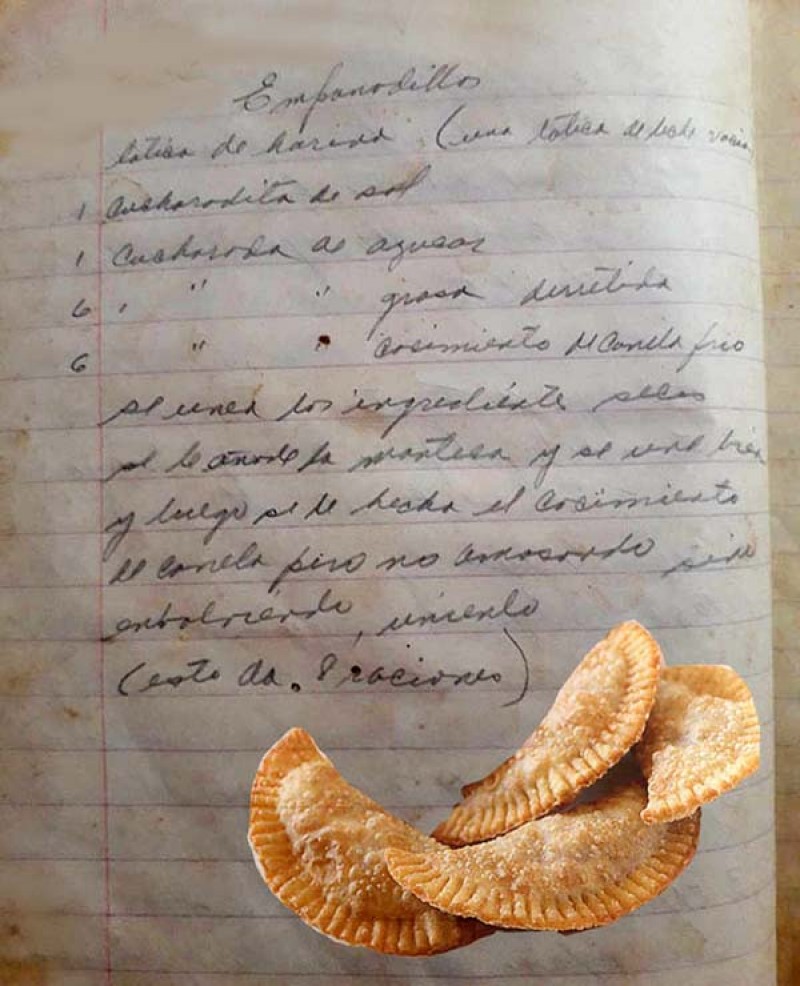 Empanadillas
latica de harina (una latica de leche vacia
1 cucharadita de sal
1 cucharada de azucar
6 " " " grasa derretida
6 " " cosimiento de canela frio
se unen los ingrediente secos
se le añade la manteca y se une bien
y luego se le hecha el cosimiento
de canela pero no amasando sino
enbolviendo, uniendo
(esto da. 8 raciones)